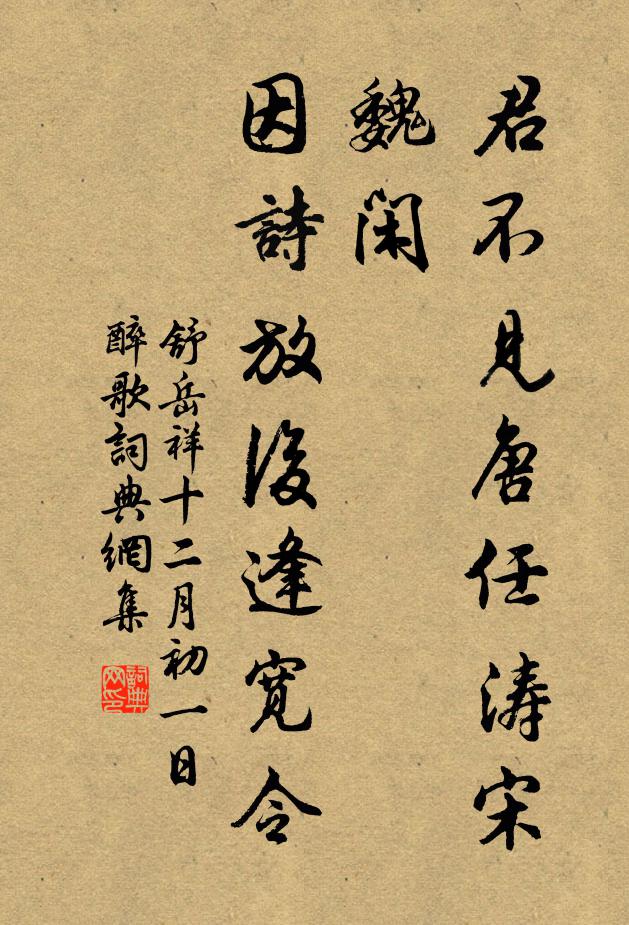 君不見唐任濤宋
魏閑
因詩放後逢寬令
舒岳祥十二月初一日
醉歌詞典網集
詞典
网印